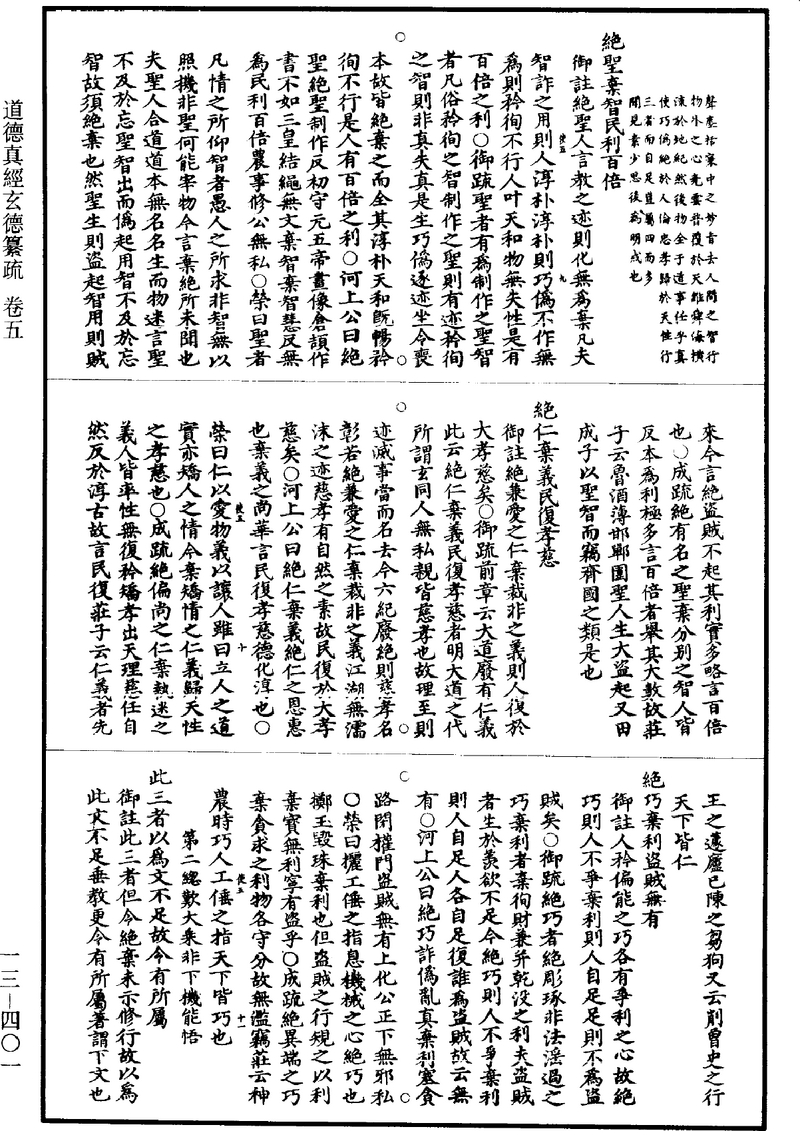 聲塵栝囊中之妙旨去人間之智行
物外之心堯雲普覆於天雖舜海橫
流於地紀然後物全于道事任乎真
使巧偽絕於人倫忠孝歸於天性行
三者而自足豈屬四而多
聞見素少思後為明戒也
絕聖棄智民利百倍
御註絕聖人言教之迹則化無為棄凡夫
智詐之用則人淳朴淳朴則巧偽不作無
為則矜徇不行人叶天和物無失性是有
百倍之利○御疏聖者有為制作之聖智
者凡俗矜徇之智制作之聖則有迹矜徇
之智則非真失真是生巧偽逐迹坐令喪
本故皆絕棄之而全其淳朴天和旣暢矜
徇不行是人有百倍之利○河上公曰絕
聖絕聖制作反初守元五帝畫像倉頡作
書不如三皇結繩無文棄智棄智慧反無
為民利百倍農事修公無私○榮曰聖者
凡情之所仰智者愚人之所求非智無以
照機非聖何能宰物今言棄絕所未聞也
夫聖人合道道本無名名生而物迷言聖
不及於忘聖智出而偽起用智不及於忘
智故須絕棄也然聖生則盜起智用則賊
來今言絕盜賊不起其利實多略言百倍
也○成疏絕有名之聖棄分別之智人皆
反本為利極多言百倍者舉其大數故莊
子云魯酒薄邯鄲圍聖人生大盜起又田
成子以聖智而竊齊國之類是也
絕仁棄義民復孝慈
御註絕兼愛之仁棄裁非之義則人復於
大孝慈矣○御疏前章云大道廢有仁義
此云絕仁棄義民復孝慈者明大道之代
所謂玄同人無私親皆慈孝也故理至則
迹滅事當而名去今六紀廢絕則慈孝名
彰若絕兼愛之仁棄裁非之義江湖無濡
沫之迹慈孝有自然之素故民復於大孝
慈矣○河上公曰絕仁棄義絕仁之恩惠
也棄義之尚華言民復孝慈德化淳也○
榮曰仁以愛物義以讓人雖曰立人之道
實亦矯人之情今棄矯情之仁義歸天性
之孝慈也○成疏絕偏尚之仁棄執迷之
義人皆率性無復矜矯孝出天理慈任自
然反於淳古故言民復莊子云仁義者先
王之蘧廬已陳之芻狗又云削曾史之行
天下皆仁
絕巧棄利盜賊無有
御註人矜偏能之巧各有爭利之心故絕
巧則人不爭棄利則人自足足則不為盜
賊矣○御疏絕巧者絕彫琢非法淫過之
巧棄利者棄徇財兼并乾没之利夫盜賊
者生於羨欲不足今絕巧則人不爭棄利
則人自足人各自足復誰為盜賊故云無
有○河上公曰絕巧詐偽亂真棄利塞貪
路閉權門盜賊無有上化公正下無邪私
○榮曰攦工倕之指息機械之心絕巧也
擲玉毀珠棄利也但盜賊之行規之以利
棄寶無利寧有盜乎○成疏絕異端之巧
棄貪求之利物各守分故無濫竊莊云神
農時巧人工倕之指天下皆巧也
第二總歎大乘非下機能悟
此三者以為文不足故令有所屬
御註此三者但令絕棄未示修行故以為
此文不足垂教更令有所屬著謂下文也
道德真經玄德纂疏　卷五
一三—四〇一